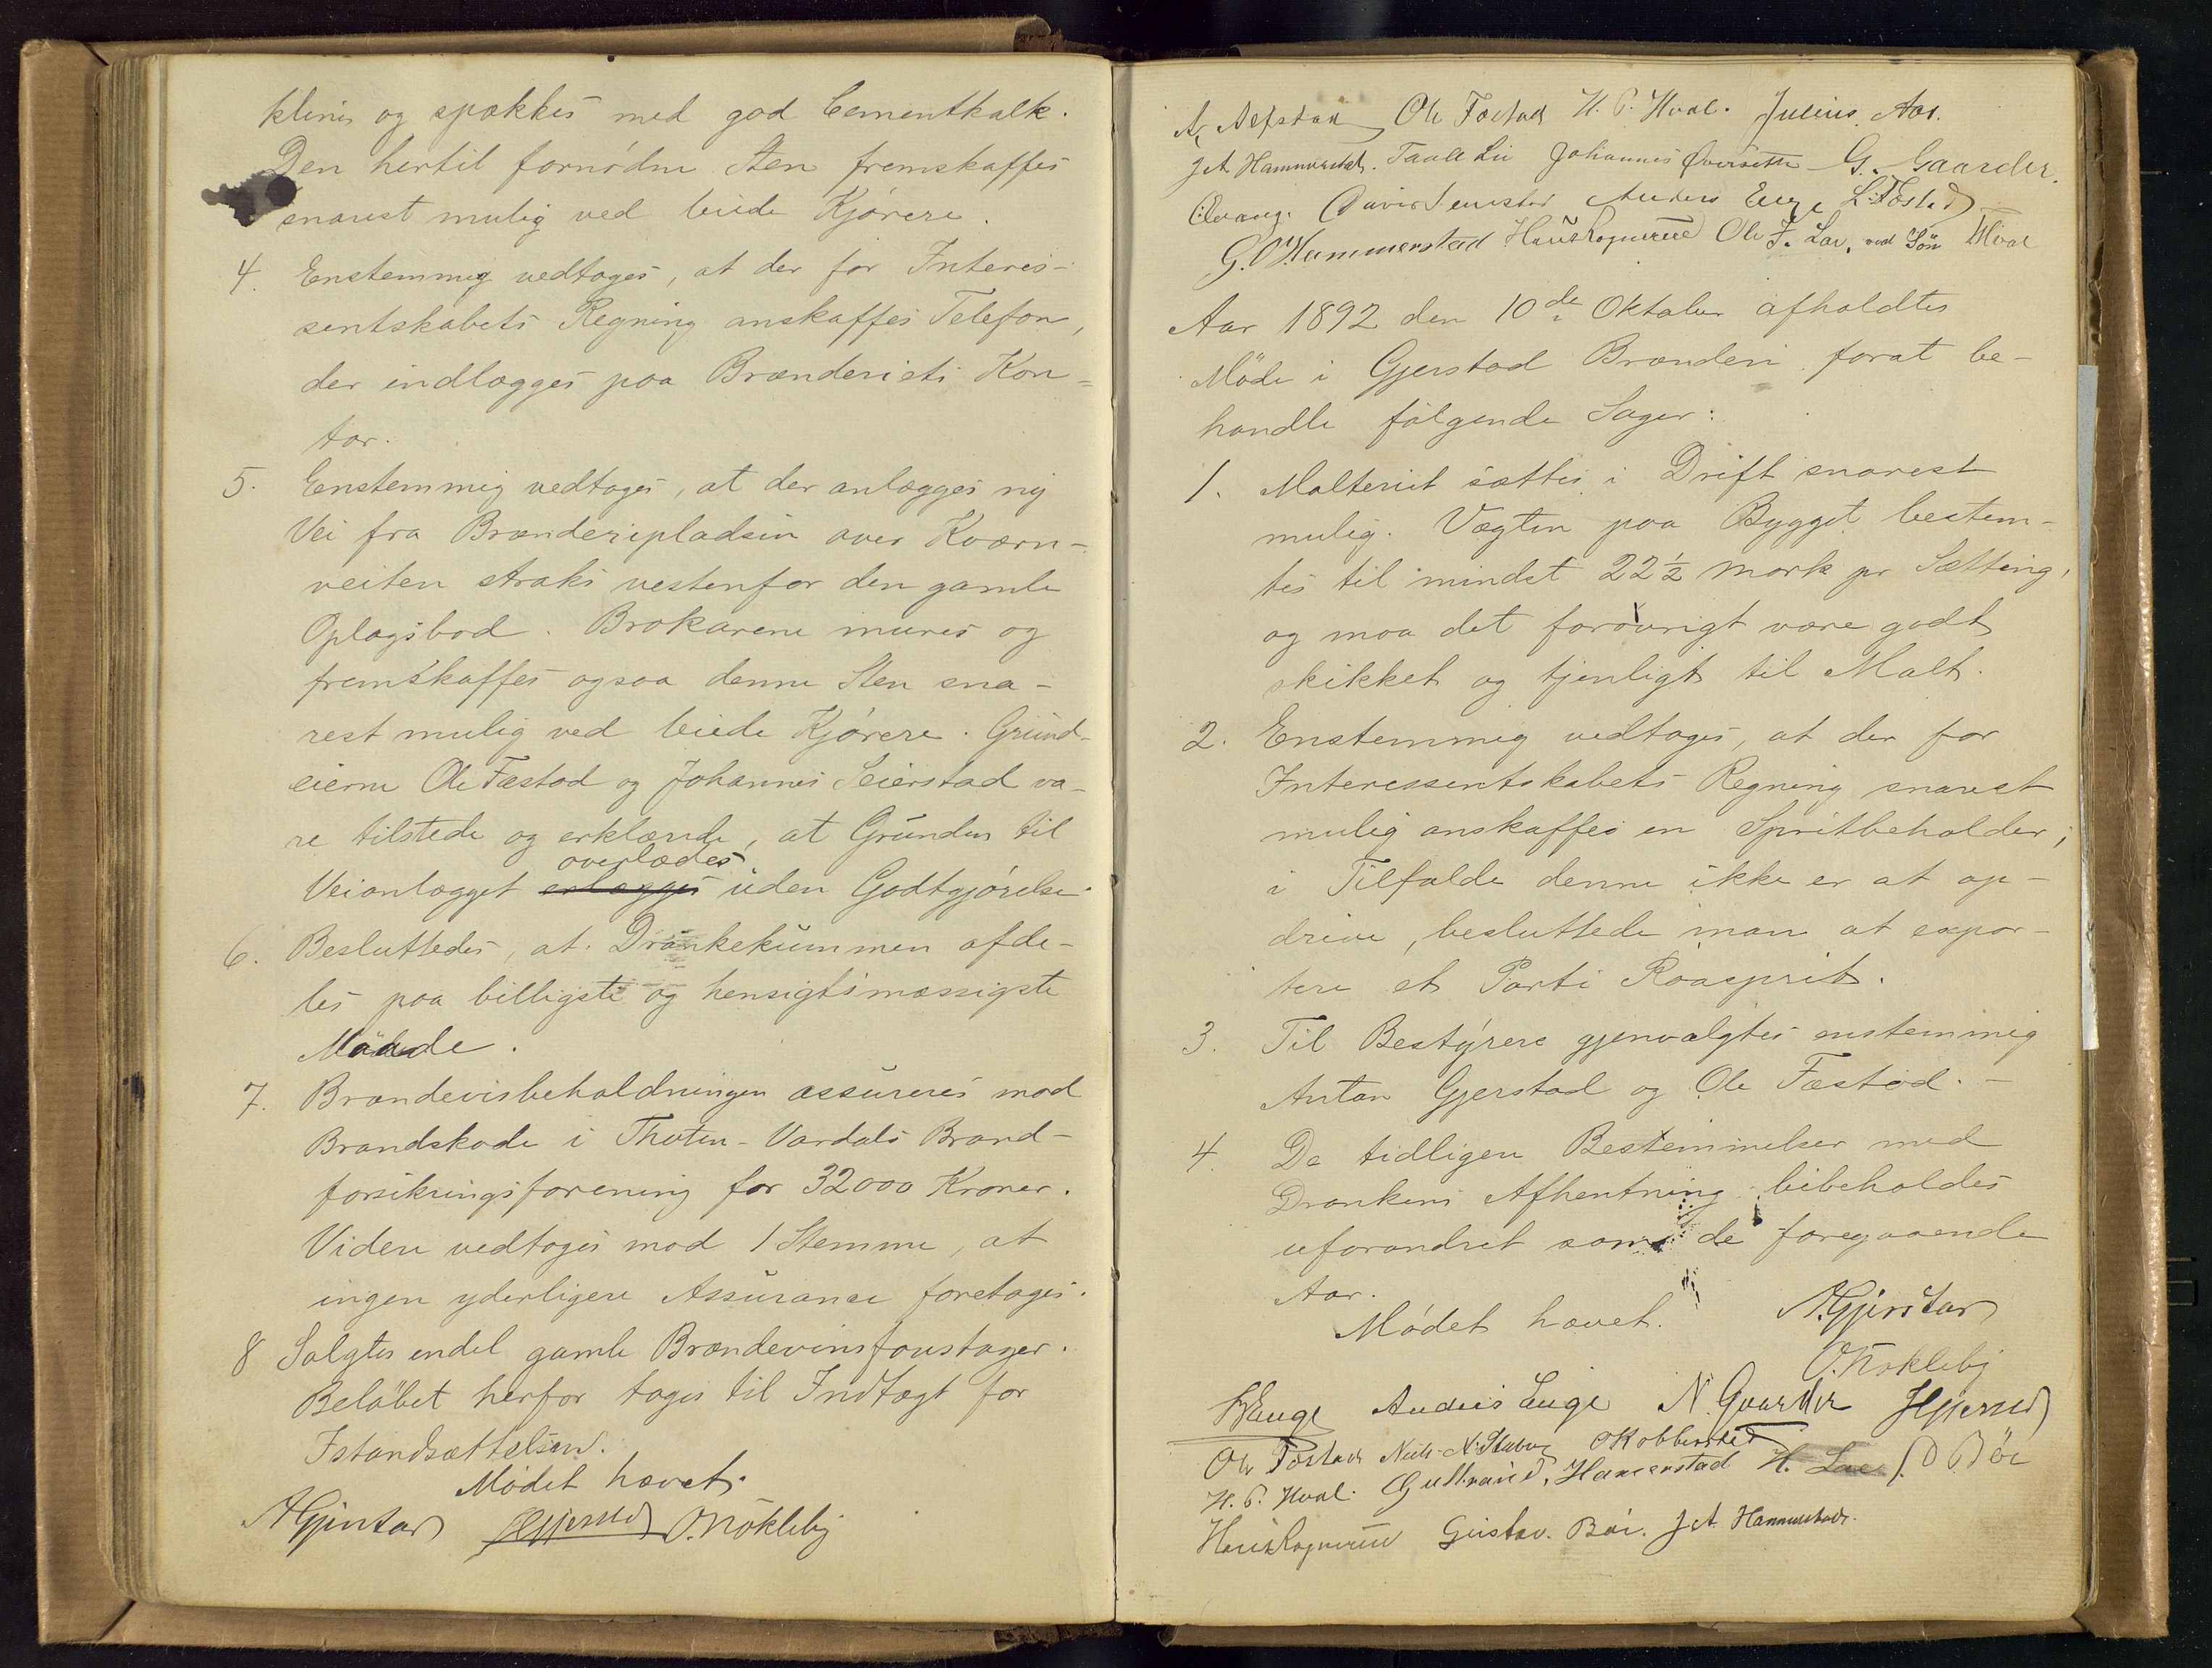 klines og spækkes med god Cementkalk.
Den hertil fornødne Sten fremskaffes
snarest mulig ved leiede Kjørere.
4. Enstemmig vedtoges, at der for Interes-
sentskabets Regning anskaffes Telefon,
der indlægges paa Brænderiets Kon=
tor.
5. Enstemmig vedtoges, at der anlægges ny
Vei fra Brænderipladsen over Kværn-
veiten straks vestenfor den gamle
Oplagsbod. Brokarene mures og
fremskaffes ogsaa denne Sten sna-
rest mulig ved leiede Kjørere. Grund-
eierne Ole Fæstad og Johannes Seierstad va-
re tilstede og erklærede, at Grunden til
overlades
Veianlægget uden Godtgjørelse.
6. Besluttedes, at Drankekummen afde-
les paa billigste og hensigtsmæssigste
Maade.
7. Brændevinsbeholdningen assureres mod
Brandskade i Thoten-Vardals Brand-
forsikringsforening for 32000 Kroner.
Videre vedtoges mod 1 Stemme, at
ingen yderligere Assurance foretages.
8 Solgtes endel gamle Brændevinsfoustager.
Beløbet herfor tages til Indtægt for
Istandsættelsen.
Mødet hævet.
AGjerstad O. Nøkleby
A. Nefstad Ole Fæstad H. P. Hval. Julius Aas.
J A Hammerstad. Taale Lie Johannes Øversetter G. Gaarder.
Anders Enge L. Fostad
G. O Hammerstad Hans Rognerud Ole J. Lae, ved Søn Hval
Aar 1892 den 10de Oktober afholdtes
Møde i Gjerstad Brænderi forat be-
handle følgende Sager:
1. Malteriet sættes i Drift snarest
mulig. Vægten paa Bygget bestem-
tes til mindst 22 ½ Mark pr Sætting,
og maa det forøvrigt være godt
skikket og tjenligt til Malt.
2. Enstemmig vedtoges, at der for
Interessentskabets Regning snarest
mulig anskaffes en Spritbeholder;
i Tilfælde denne ikke er at op-
drive, besluttede man at expor-
tere et Parti Raasprit.
3. Til Bestyrere gjenvalgtes enstemmig
Anton Gjerstad og Ole Fæstad. -
4. De tidligere Bestemmelser med
Drankens Afhentning bibeholdes
uforandret som de foregaaende
Aar.
Mødet hævet. A. Gjerstad
O. Nøkleby
H Enge Anders Enge N. Gaarder
Ole Fæstad Niels N. Stabo O Kobberstad
H. P. Hval. Gulbrand. Hamerstad H. Lae P Bøe
Hans Rognerud Gustav. Bøe. J A Hammerstad.